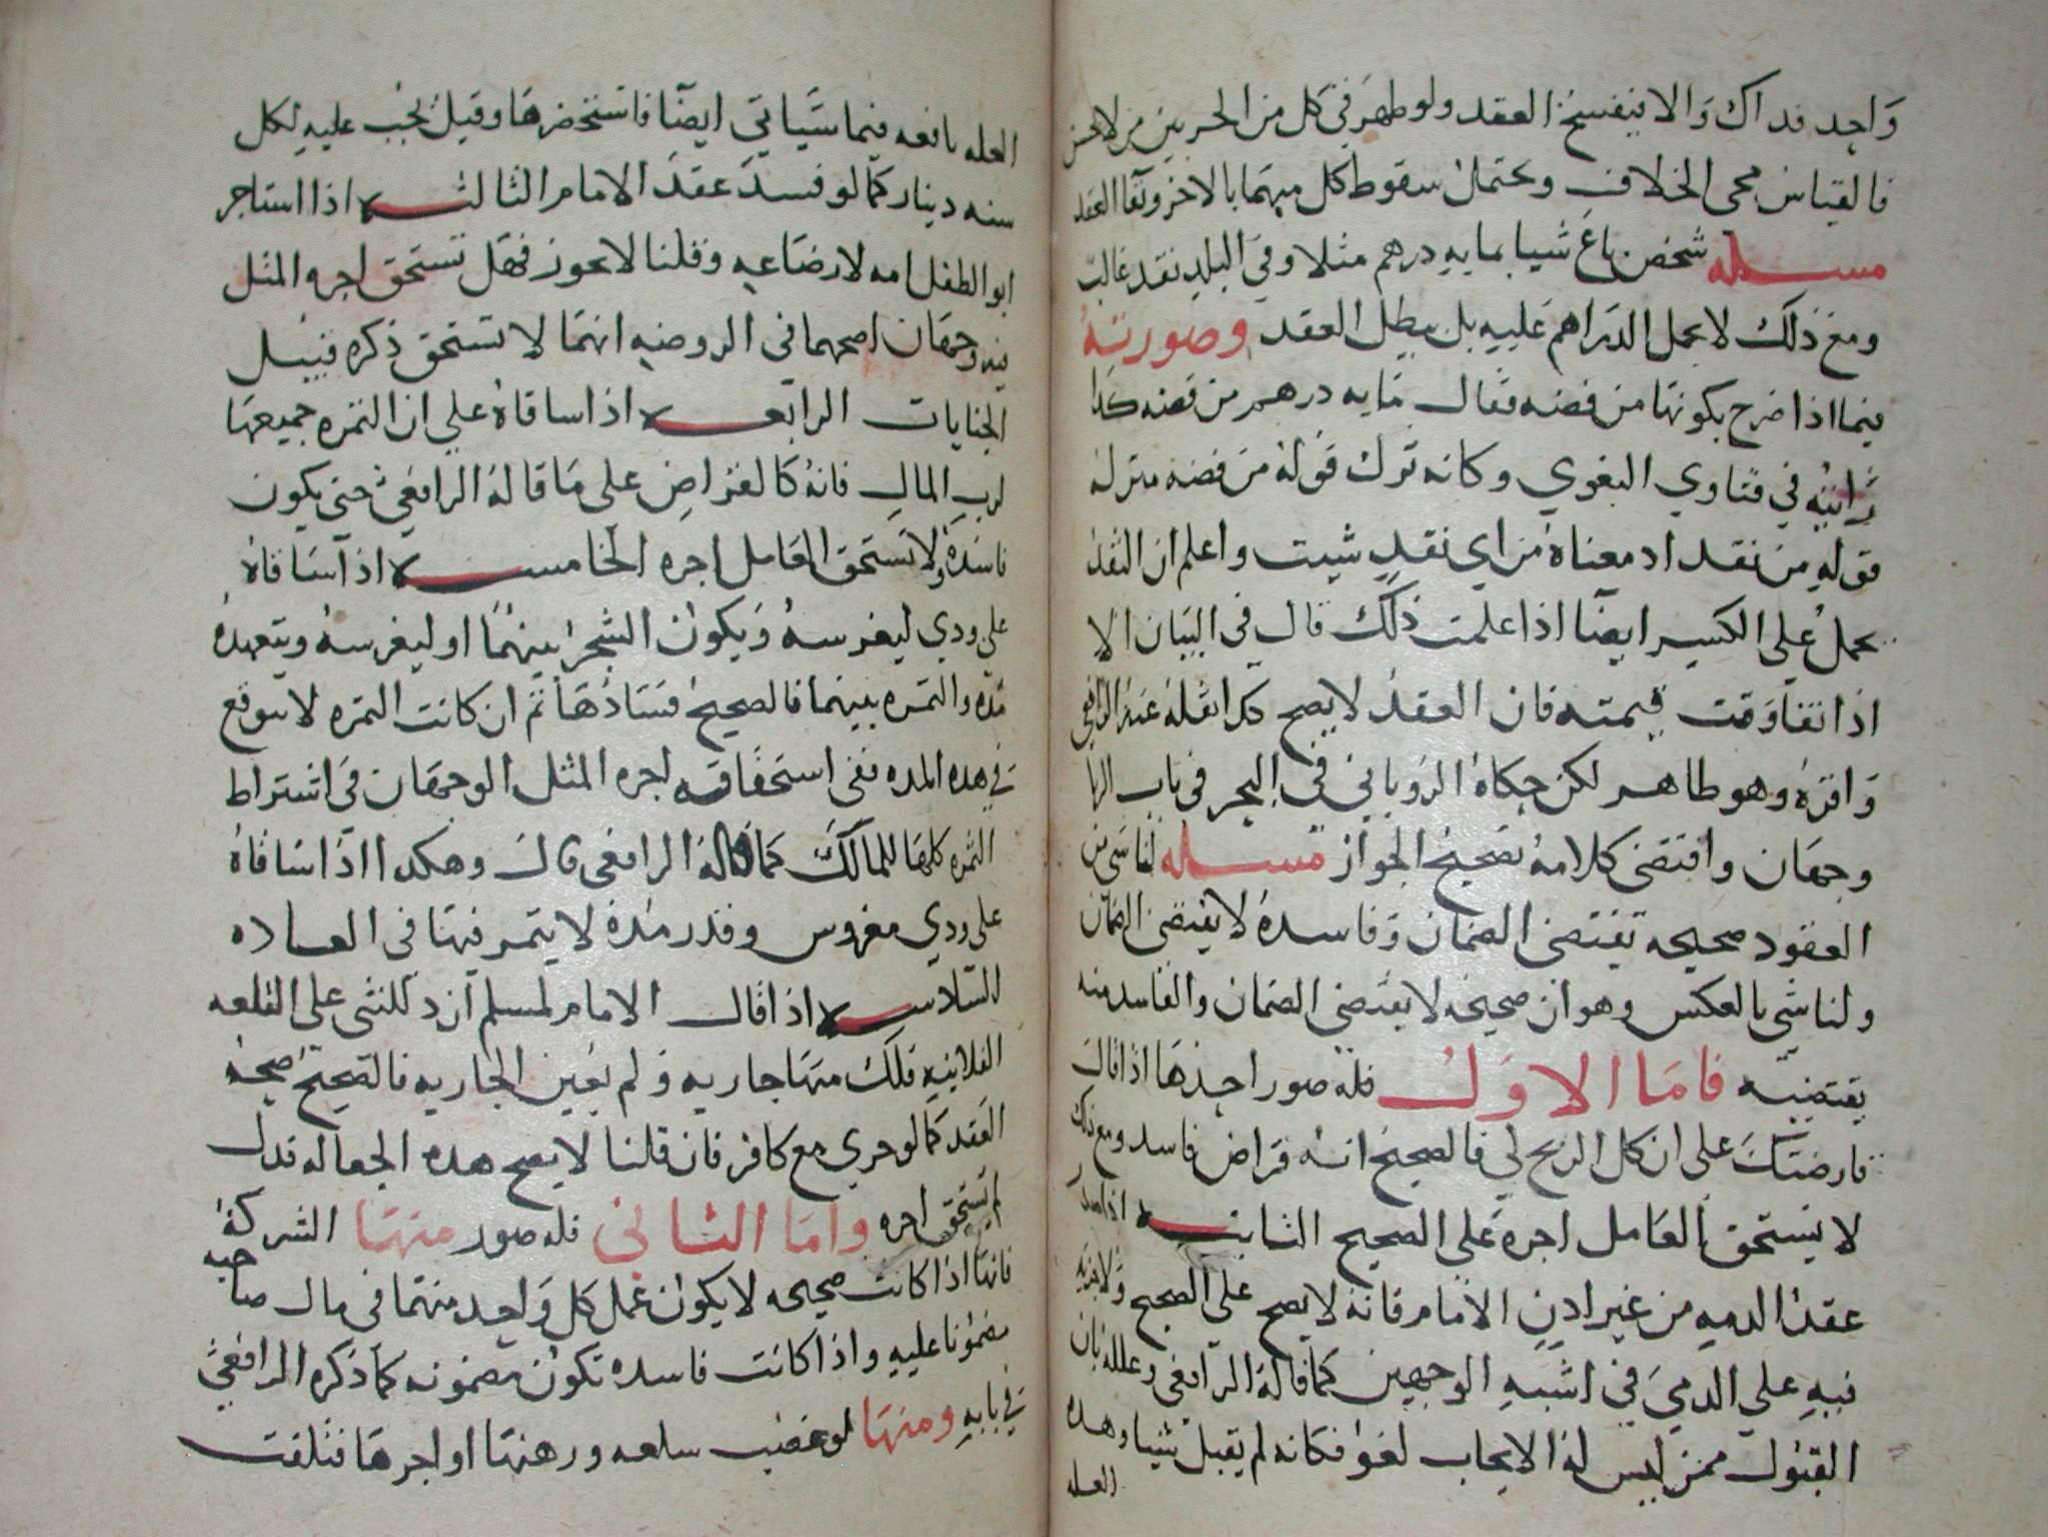 واحد فداك والا ينفسخ العقد ولو ظهر في كل من الحربيين من لا يحن
فالقياس مجى الخلاف ويحتمل سقوط كل منهما بالاخر وبقا العقد
مسله شخص باع شيا بمايه درهم مثلا وفي البلد نقد غالب
ومع ذلك لا يحمل الدراهم عليه بل يبطل العقد وصورته
فيما اذا صرح بكونها من فضه فقال بمايه درهم من فضه كذا
رايته في فتاوي البغوي وكانه ترك قوله من فضه منزله
قوله من نقد اد معناه من اي نقد شيت واعلم ان النقد
يحمل على الكسير ايضا اذا علمت ذلك قال في البيان الا
اذا تفاوتت قيمته فان العقد لا يصح حكدا نقله عنه الرافعي
واقره وهو ظاهر لكن حكاه الروياني في البحر في باب الربا
وجهان واقتضى كلامه تصحيح الجواز مسله لنا شي من
العقود صحيحه تقتضى الضمان وفاسده لا يقتضى الضمان
ولنا شي بالعكس وهو ان صحيحه لا يقتضى الضمان والفاسد منه
يقتضيه فاما الاول فله صور احدها اذا قال
قارضتك على ان كل الربح لي فالصحيح انه قراض فاسد ومع ذلك
لا يستحق العامل اجره على الصحيح الثانيه اذا صدر
عقد الدمه من غير ادن الامام فانه لا يصح على الصحيح ولا جزيه
فيه على الدمي في اشبه الوجهين كما قاله الرافعي وعلله بان
القبول ممن ليس له الايجاب لغو فكانه لم يقبل شيا وهده
العله
العله نافعه فيما سياتي ايضا فاستحضرها وقيل يجب عليه لكل
سنه دينار كما لو فسد عقد الامام الثالثه اذا استاجر
ابو الطفل امه لارضاعه وقلنا لا يجوز فهل تستحق اجره المثل
فيه وجهان اصحهما في الروضه انها لا تستحق ذكره قبيل
الجنايات الرابعه اذا ساقاه على ان الثمره جميعها
لرب المال فانه كالقراض على ما قاله الرافعي حتى يكون
فاسده ولا يستحق العامل اجره الخامسه اذا ساقاه
على ودي ليغرسه ويكون الشجر بينهما او ليغرسه ويتعهده
مده والثمره بينهما فالصحيح فسادها ثم ان كانت الثمره لا تتوقع
في هده المده ففى استحقاقه اجره المثل الوجهان في اشتراط
الثمره كلها للمالك كما قاله الرافعي قال وهكدا اذا ساقاه
على ودي مغروس وقدر مده لا يثمر فيها في العاده
السادسه اذا قال الامام لمسلم ان دللتنى على القلعه
الفلانيه فلك منها جاريه ولم يعين الجاريه فالصحيح صحه
العقد كما لو جرى مع كافر فان قلنا لا يصح هده الجعاله فدل
لم يستحق اجره واما الثاني فله صور منها الشركه
فانها اذا كانت صحيحه لا يكون عمل كل واحد منهما في مال صاحبه
مضمونا عليه واذا كانت فاسده تكون مضمونه كما ذكره الرافعي
في بابه ومنها لو غصب سلعه ورهنها او اجرها فتلفت